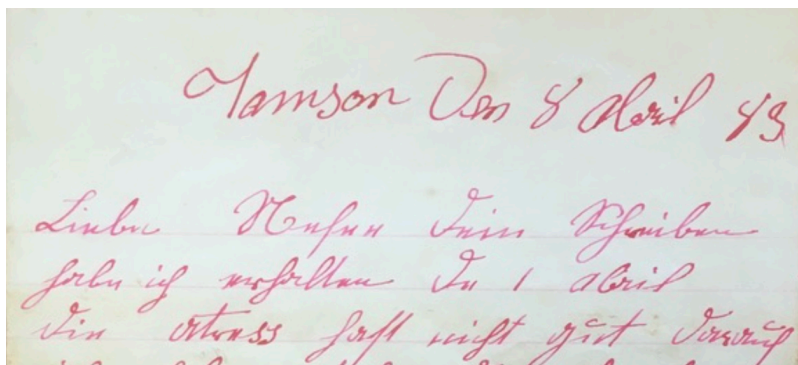 Jamson Den 8 Abril 83
Liebe Dein Schreiben
habe ich erhalten De 1 Abril
die atress hast nicht gut darauf